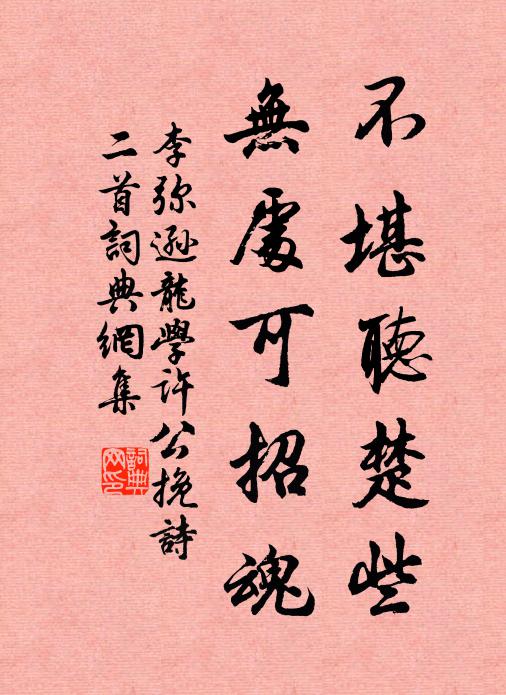 不堪聽楚些
無處可招魂
李弥遜龍學許公挽詩
二首詞典網集
詞典網印